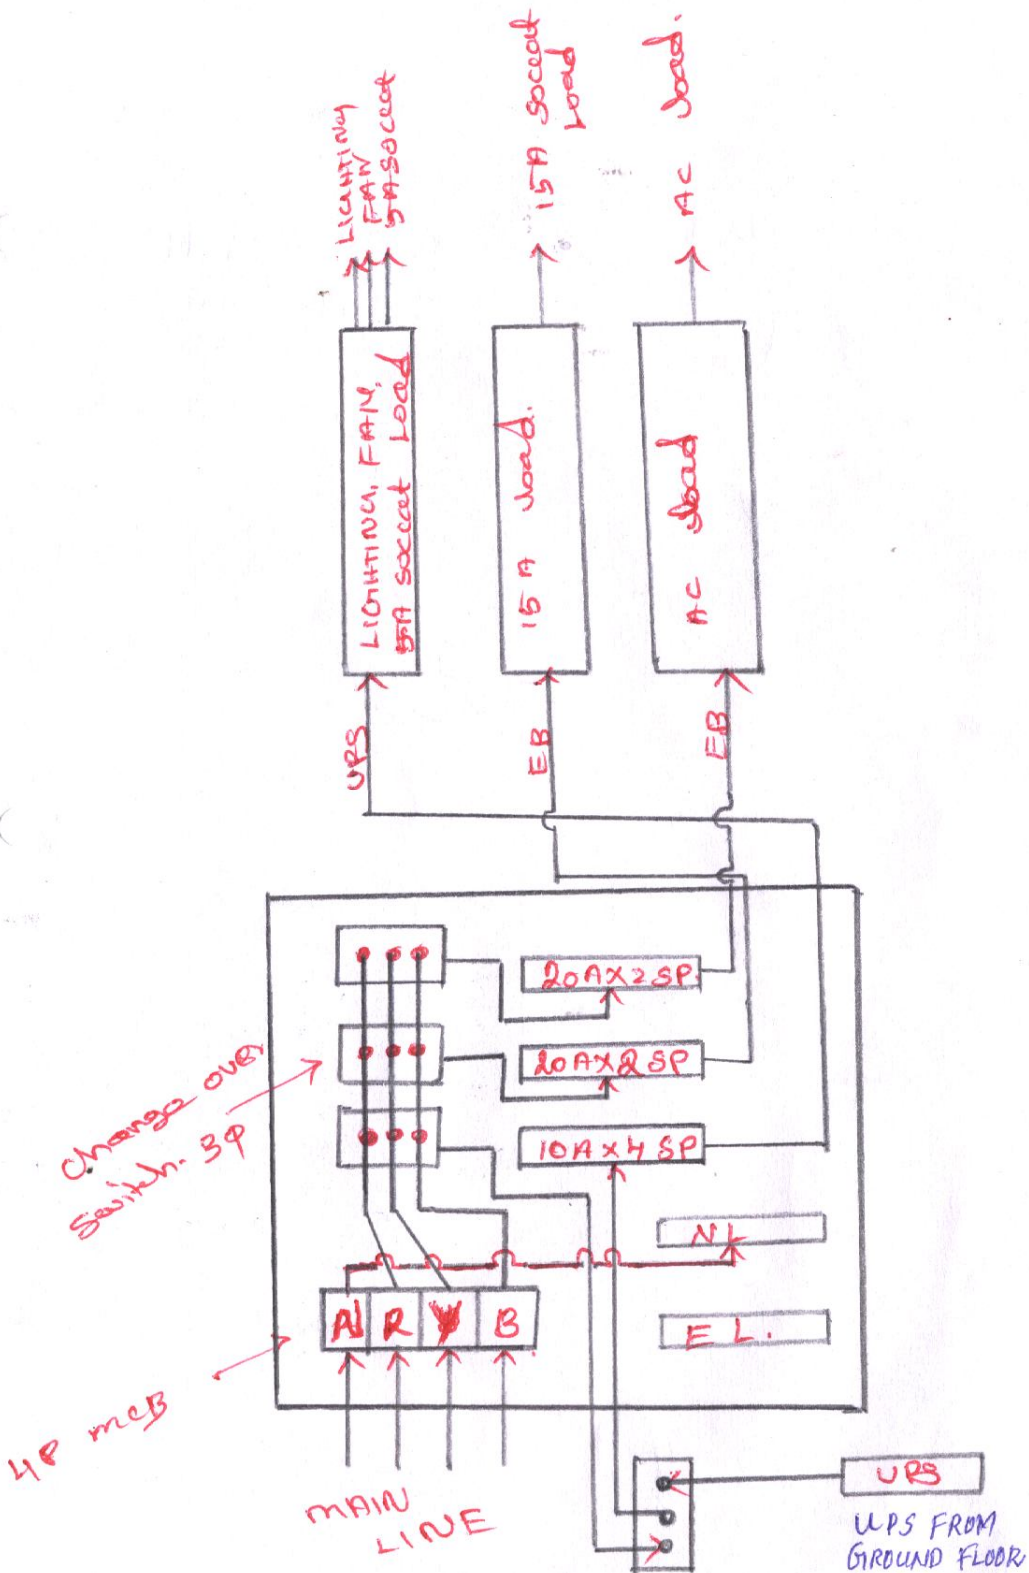 LIGHTING
FAN
5A SOCCOT
15A SOCCOT
LOAD
AC load.
LIGHTING, FAN,
5A SOCCOT LOAD
15A load.
AC load
UPS
EB
EB
20A X 2 SP.
20A X 2 SP
10A X 4 SP
Change over
Switch. 3φ
NL
N R Y B
E L.
4P MCB
MAIN
LINE
UPS
UPS FROM
GROUND FLOOR